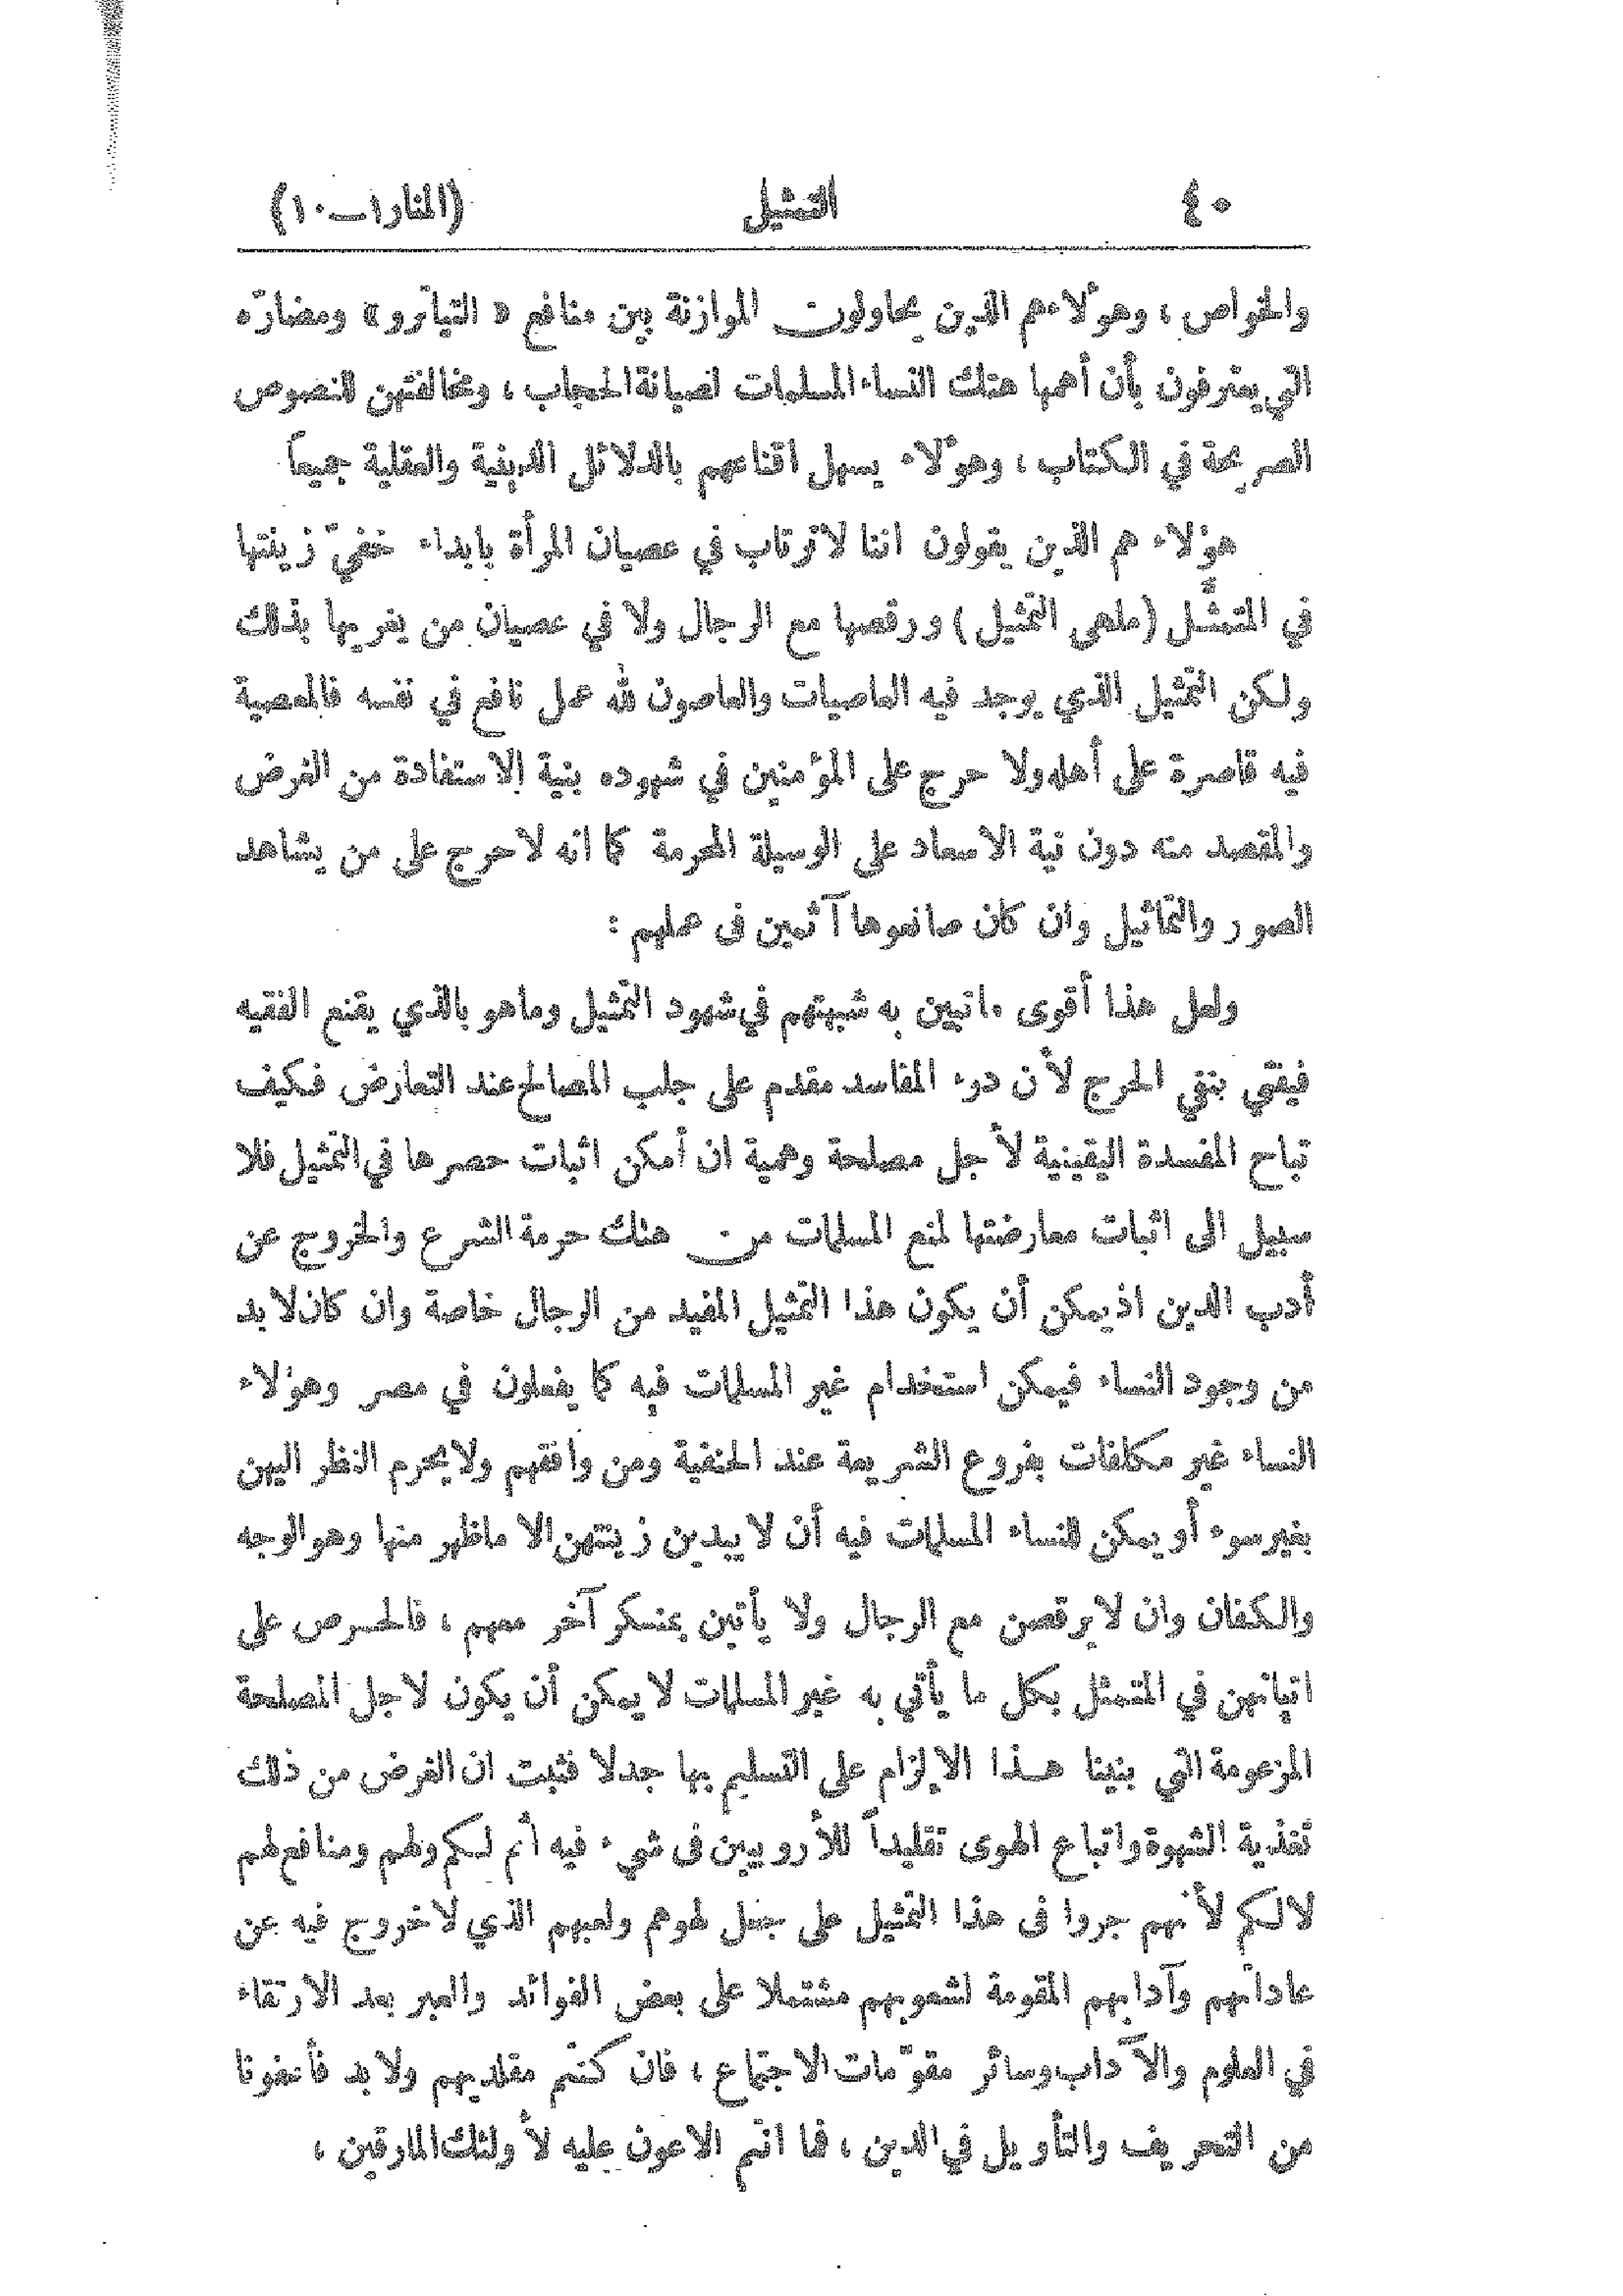 ٤٠ التمثيل (المنار ١ــ١٠)
والخواص ، وهؤلاء هم الذين يحاولون الموازنة بين منافع « التياترو » ومضارّه
التي يعترفون بأن أهمها هتك النساء المسلمات لصيانة الحجاب ، ومخالفتهن للنصوص
الصريحة في الكتاب ، وهؤلاء يسهل اقناعهم بالدلائل الدينية والعقلية جميعاً
هؤلاء هم الذين يقولون اننا لا نرتاب في عصيان المرأة بابداء خفيّ زينتها
في المتمثَّل (ملهى التمثيل) ورقصها مع الرجال ولا في عصيان من يغريها بذلك
ولكن التمثيل الذي يوجد فيه العاصيات والعاصون لله عمل نافع في نفسه فالمعصية
فيه قاصرة على أهله ولا حرج على المؤمنين في شهوده بنية الاستفادة من الغرض
والمقصد منه دون نية الاسعاد على الوسيلة المحرمة كما انه لا حرج على من يشاهد
الصور والتماثيل وان كان صانعوها آثمين فى عملهم :
ولعل هذا أقوى ماتبين به شبهتهم في شهود التمثيل وماهو بالذي يقنع الفقيه
فيفتي بنفي الحرج لأن درء المفاسد مقدم على جلب المصالح عند التعارض فكيف
تباح المفسدة اليقينية لأجل مصلحة وهمية ان أمكن اثبات حصرها في التمثيل فلا
سبيل الى اثبات معارضتها لمنع المسلمات من هتك حرمة الشرع والخروج عن
أدب الدين اذ يمكن أن يكون هذا التمثيل المفيد من الرجال خاصة وان كان لا بد
من وجود النساء فيمكن استخدام غير المسلمات فيه كما يفعلون في مصر وهؤلاء
النساء غير مكلفات بفروع الشريعة عند الحنفية ومن وافقهم ولا يحرم النظر اليهن
بغير سوء أو يمكن للنساء المسلمات فيه أن لا يبدين زينتهن الا ماظهر منها وهو الوجه
والكفان وان لا يرقصن مع الرجال ولا يأتين بمنكر آخر معهم ، فالحرص على
اتيانهن في المتمثل بكل ما يأتي به غير المسلمات لا يمكن أن يكون لاجل المصلحة
المزعومة التي بنينا هذا الالزام على التسليم بها جدلا فثبت ان الغرض من ذلك
تغذية الشهوة واتباع الهوى تقليداً للأروبيين فى شيء فيه اثم لكم ولهم ومنافع لهم
لا لكم لأنهم جروا فى هذا التمثيل على جعل لهوهم ولعبهم الذي لا خروج فيه عن
عاداتهم وآدابهم المقومة لشعوبهم مشتملا على بعض الفوائد والعبر بعد الارتقاء
في العلوم والآداب وسائر مقوّمات الاجتماع ، فان كنتم مقلديهم ولا بد فأعفونا
من التحريف والتأويل في الدين ، فما انتم الاعون عليه لأولئك المارقين ،